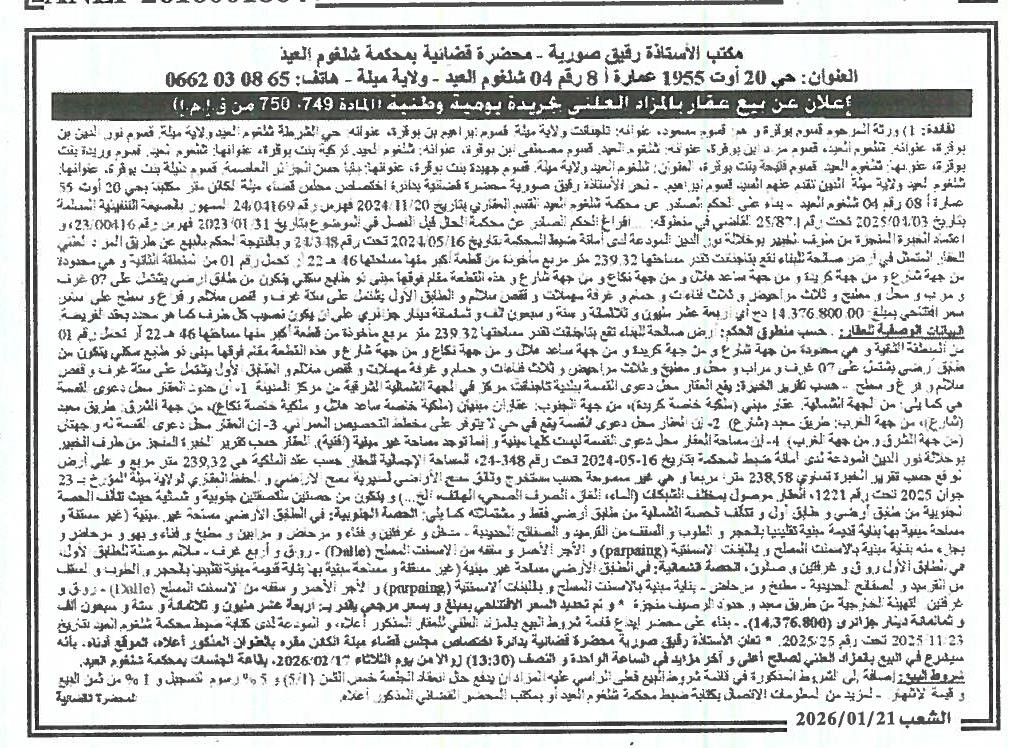 مكتب الأستاذة رقيق صورية - محضرة قضائية بمحكمة شلغوم العيد
العنوان: حي 20 أوت 1955 عمارة أ 8 رقم 04 شلغوم العيد - ولاية ميلة - هاتف: 65 08 03 0662
إعلان عن بيع عقار بالمزاد العلني بجريدة يومية وطنية (المادة 749، 750 من ق.إ.م.إ)
لفائدة: 1) ورثة المرحوم قسوم بوقرة و هم: قسوم مسعود، عنوانه: تاجنانت ولاية ميلة. قسوم ابراهيم بن بوقرة، عنوانه: حي الشرطة شلغوم العيد ولاية ميلة. قسوم نور الدين بن
بوقرة، عنوانه: شلغوم العيد، قسوم مراد ابن بوقرة، عنوانه: شلغوم العيد. قسوم مصطفى ابن بوقرة، عنوانه: شلغوم العيد. تركية بنت بوقرة، عنوانها: شلغوم العيد. قسوم وريدة بنت
بوقرة، عنوانها: شلغوم العيد. قسوم فتيحة بنت بوقرة، العنوان: شلغوم العيد ولاية ميلة. قسوم جهيدة بنت بوقرة، عنوانها: حسن الجزائر العاصمة. قسوم نبيلة بنت بوقرة، عنوانها:
شلغوم العيد ولاية ميلة. الذين تقدم عنهم السيد قسوم ابراهيم. - نحن الأستاذة رقيق صورية محضرة قضائية بدائرة اختصاص مجلس قضاء ميلة الكائن مقر مكتبنا بحي 20 أوت 55
عمارة أ 08 رقم 04 شلغوم العيد. - بناء على الحكم الصادر عن محكمة شلغوم العيد القسم العقاري بتاريخ 2024/11/20 فهرس رقم 24/04169 الممهور بالصيغة التنفيذية المسلمة
بتاريخ 2025/04/03 تحت رقم 25/871 القاضي في منطوقه: ... افراغ الحكم الصادر عن محكمة الحال قبل الفصل في الموضوع بتاريخ 2023/01/31 فهرس رقم 23/00416، و
اعتماد الخبرة المنجزة من طرف الخبير بوخلالة نور الدين المودعة لدى أمانة ضبط المحكمة بتاريخ 2024/05/16 تحت رقم 24/348 و بالنتيجة الحكم بالبيع عن طريق المزاد العلني
للعقار المتمثل في أرض صالحة للبناء تقع بتاجنانت تقدر مساحتها 239.32 متر مربع مأخوذة من قطعة أكبر منها مساحتها 46 هـ 22 آر تحمل رقم 01 من المنطقة الثانية و هي محدودة
من جهة شارع و من جهة كريدة و من جهة ساعد هلال و من جهة نكاع و من جهة شارع و هذه القطعة مقام فوقها مبنى ذو طابع سكني يتكون من طابق أرضي يشتمل على 07 غرف
و مرآب و محل و مطبخ و ثلاث مراحيض و ثلاث فناءات و حمام و غرفة مهملات و قفص سلالم و الطابق الأول يشتمل على ستة غرف و قفص سلالم و فراغ و سطح على
سعر افتتاحي بمبلغ 14.376.800.00 دج أي أربعة عشر مليون و ثلاثمائة و ستة و سبعون ألف و ثمانمائة دينار جزائري على أن يكون نصيب كل طرف كما هو محدد بعقد الفريضة.
البيانات الوصفية للعقار: . حسب منطوق الحكم: أرض صالحة للبناء تقع بتاجنانت تقدر مساحتها 239.32 متر مربع مأخوذة من قطعة أكبر منها مساحتها 46 هـ 22 آر تحمل رقم 01
من المنطقة الثانية و هي محدودة من جهة شارع و من جهة كريدة و من جهة ساعد هلال و من جهة نكاع و من جهة شارع و هذه القطعة مقام فوقها مبنى ذو طابع سكني يتكون من
طابق أرضي يشتمل على 07 غرف و مرآب و محل و مطبخ و ثلاث مراحيض و ثلاث فناءات و حمام و غرفة مهملات و قفص سلالم و الطابق الأول يشتمل على ستة غرف و قفص
سلالم و فراغ و سطح. - حسب تقرير الخبرة: يقع العقار محل دعوى القسمة ببلدية تاجنانت مركز في الجهة الشمالية الشرقية من مركز المدينة 1- ان حدود العقار محل دعوى القسمة
هي كما يلي: من الجهة الشمالية: عقار مبني (ملكية خاصة كريدة)، من جهة الجنوب: عقاران مبنيان (ملكية خاصة ساعد هلال و ملكية خاصة نكاع)، من جهة الشرق: طريق معبد
(شارع)، من جهة الغرب: طريق معبد (شارع) 2- إن العقار محل دعوى القسمة يقع في حي لا يتوفر على مخطط التخصيص العمراني. 3- إن العقار محل دعوى القسمة له واجهتان
(من جهة الشرق و من جهة الغرب) 4- إن مساحة العقار محل دعوى القسمة ليست كلها مبنية و إنما توجد مساحة غير مبنية (أفنية). العقار حسب تقرير الخبرة المنجز من طرف الخبير
بوخلالة نور الدين المودعة لدى أمانة ضبط المحكمة بتاريخ 16-05-2024 تحت رقم 348-24، المساحة الإجمالية للعقار حسب عقد الملكية هي 239,32 متر مربع و على أرض
الواقع حسب تقرير الخبرة تساوي 238,58 متر مربعا و هي غير ممسوحة حسب مستخرج وثائق مسح الأراضي لمديرية مسح الأراضي و الحفظ العقاري لولاية ميلة المؤرخ بـ 23
جوان 2025 تحت رقم 1221، العقار موصول بمختلف الشبكات (الماء، الغاز، الصرف الصحي، الهاتف، الخ...) و يتكون من حصتين ملتصقتين جنوبية و شمالية حيث تتألف الحصة
الجنوبية من طابق أرضي و طابق أول و تتألف الحصة الشمالية من طابق أرضي فقط و مشتملاته كما يلي: الحصة الجنوبية: في الطابق الأرضي مساحة غير مبنية (غير مسقفة و
مساحة مبنية بها بناية قديمة مبنية تقليديا بالحجر و الطوب و السقف من القرميد و الصفائح الحديدية - مدخل و غرفتين و فناء و مرحاض و مرآبين و مطبخ و فناء و بهو و مرحاض و
بجزء منه بناية مبنية بالاسمنت المسلح و باللبنات الاسمنتية (parpaing) و الآجر الأحمر و سقفه من الاسمنت المسلح (Dalle) - رواق و أربع غرف. - سلالم موصلة للطابق الأول،
في الطابق الأول رواق و غرفتين و صالون، الحصة الشمالية: في الطابق الأرضي مساحة غير مبنية (غير مسقفة و مساحة مبنية بها بناية قديمة مبنية تقليديا بالحجر و الطوب و السقف
من القرميد و الصفائح الحديدية - مطبخ و مرحاض. - بناية مبنية بالاسمنت المسلح و باللبنات الاسمنتية (parpaing) و الآجر الأحمر و سقفه من الاسمنت المسلح (Dalle) - رواق و
غرفتين التهيئة الخارجية من طريق معبد و حدود الرصيف منجزة * و تم تحديد السعر الافتتاحي بمبلغ و بسعر مرجعي يقدر بـ: أربعة عشر مليون و ثلاثمائة و ستة و سبعون ألف
و ثمانمائة دينار جزائري (14.376.800). - بناء على محضر إيداع قائمة شروط البيع بالمزاد العلني للعقار المذكور أعلاه، و المودعة لدى كتابة ضبط محكمة شلغوم العيد بتاريخ
2025/11/23 تحت رقم 2025/25. * تعلن الأستاذة رقيق صورية محضرة قضائية بدائرة اختصاص مجلس قضاء ميلة الكائن مقره بالعنوان المذكور أعلاه، الموقع أدناه، بأنه
سيشرع في البيع بالمزاد العلني لصالح أعلى و آخر مزايد في الساعة الواحدة و النصف (13:30) زوالا من يوم الثلاثاء 2026/02/17، بقاعة الجلسات بمحكمة شلغوم العيد.
شروط البيع: إضافة إلى الشروط المذكورة في قائمة شروط البيع فعلى الراسي عليه المزاد ان يدفع حال انعقاد الجلسة خمس الثمن (5/1) و 5 % رسوم التسجيل و 1 % من ثمن البيع
و قيمة الاشهار. - لمزيد من المعلومات الاتصال بكتابة ضبط محكمة شلغوم العيد أو بمكتب المحضر القضائي المذكور أعلاه. المحضرة القضائية
الشعب 2026/01/21